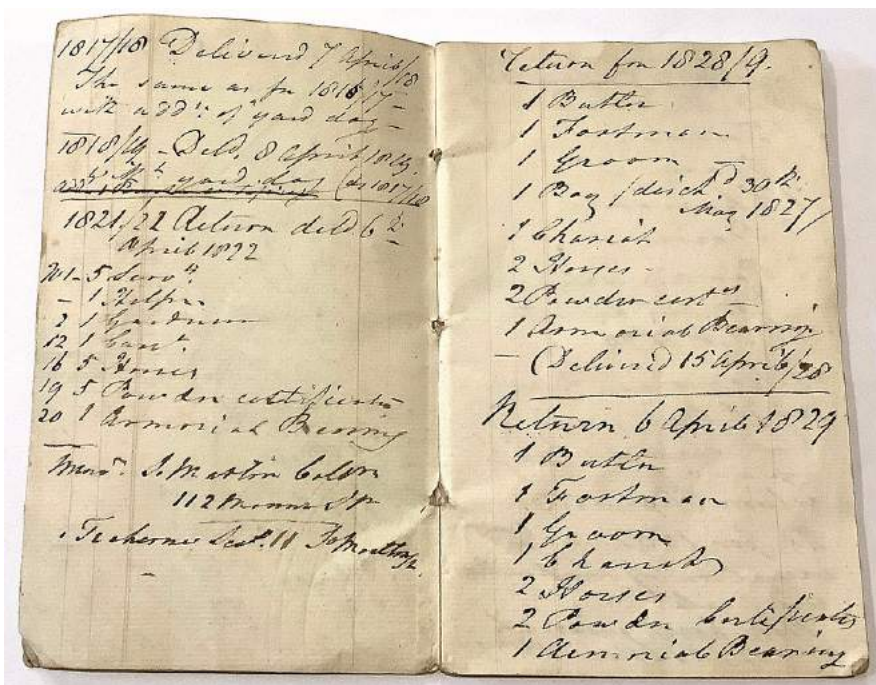 1817/18 Deliverd 7 April/18
The same as for 1816/7 -
with addn. of yard dog -
1818/19 - Deld. 8 April 1819
yard dog (as 1817/18
1821/22 Return deld 6th
April 1822
No 1 - 5 Servts.
- 1 Helper
2 1 Gardener
12 1 Carr.
16 5 Horses
19 5 Powder certificates
20 1 Armorial Bearing
112
11
Return for 1828/9.
1 Butler
1 Footman
1 Groom -
1 Boy / disch'd 30th
May 1827/
1 Chariot
2 Horses -
2 Powder certes
1 Armorial Bearing
- (Deliverd 15 April/28
Return 6 April 1829
1 Butler
1 Footman
1 Groom
1 Chariot
2 Horses
2 Powder Certificates
1 Armorial Bearing